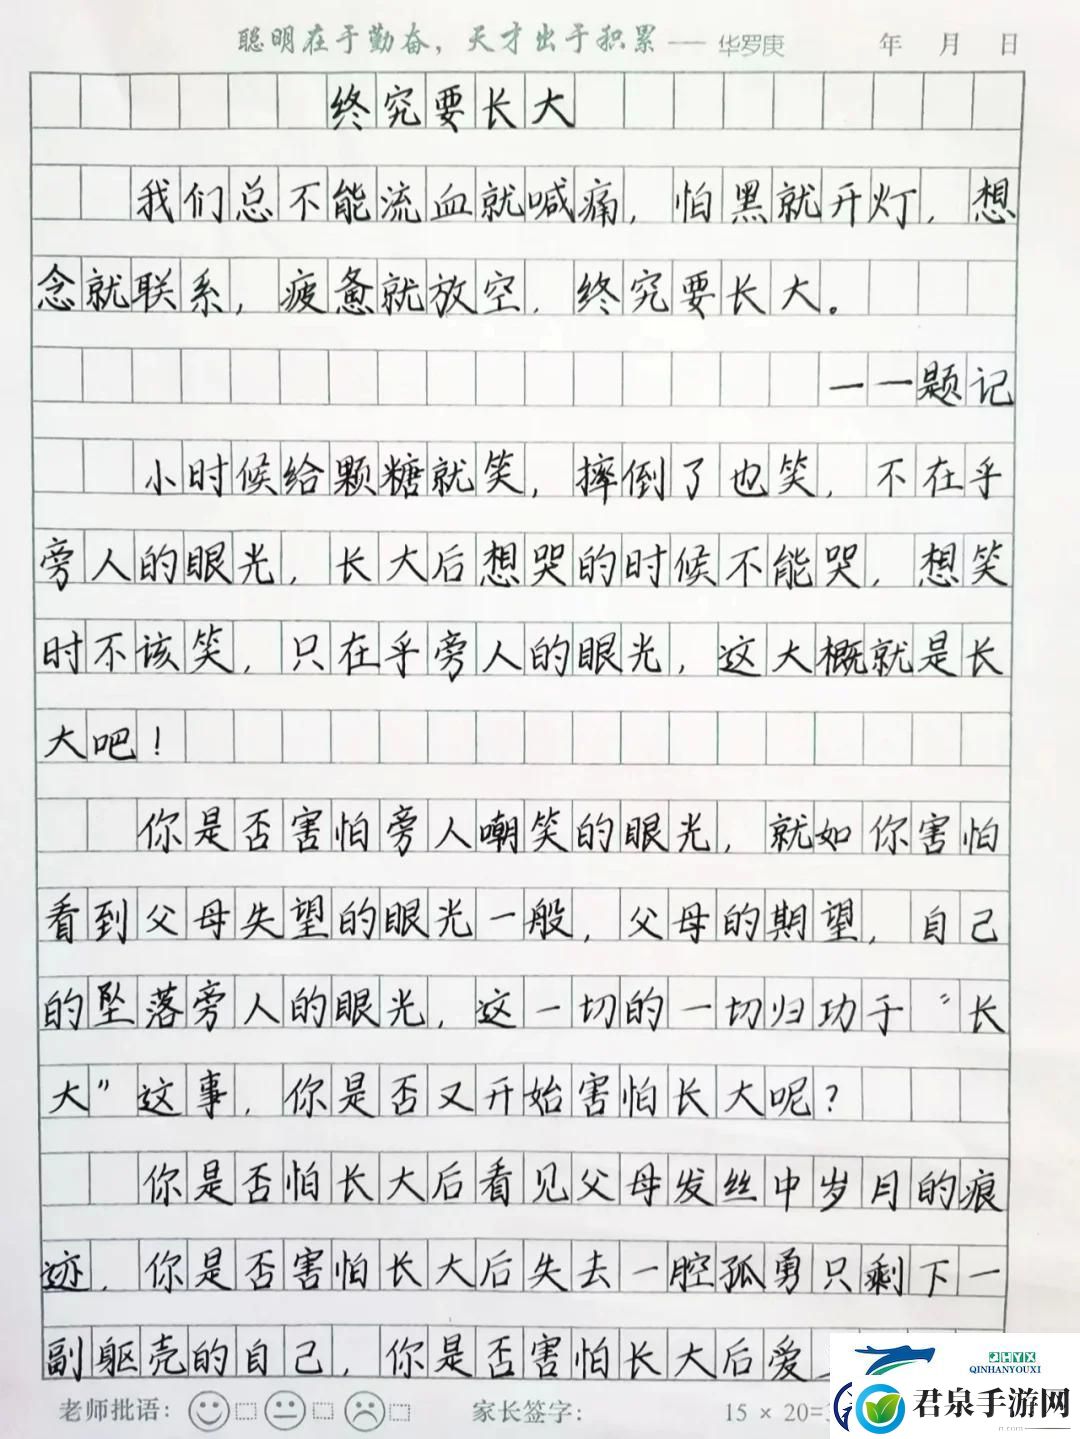 聪明在于勤奋，天才出于积累——华罗庚 年 月 日
终究要长大
我们总不能流血就喊痛，怕黑就开灯，想
念就联系，疲惫就放空，终究要长大。
——题记
小时候给颗糖就笑，摔倒了也笑，不在乎
旁人的眼光，长大后想哭的时候不能哭，想笑
时不该笑，只在乎旁人的眼光，这大概就是长
大吧！
你是否害怕旁人嘲笑的眼光，就如你害怕
看到父母失望的眼光一般，父母的期望，自己
的坠落旁人的眼光，这一切的一切归功于“长
大”这事，你是否又开始害怕长大呢？
你是否怕长大后看见父母发丝中岁月的痕
迹，你是否害怕长大后失去一腔孤勇只剩下一
副躯壳的自己，你是否害怕长大后爱
老师批语： 家长签字： 15 × 20=
QHYX
QINHANYOUXI
君泉手游网